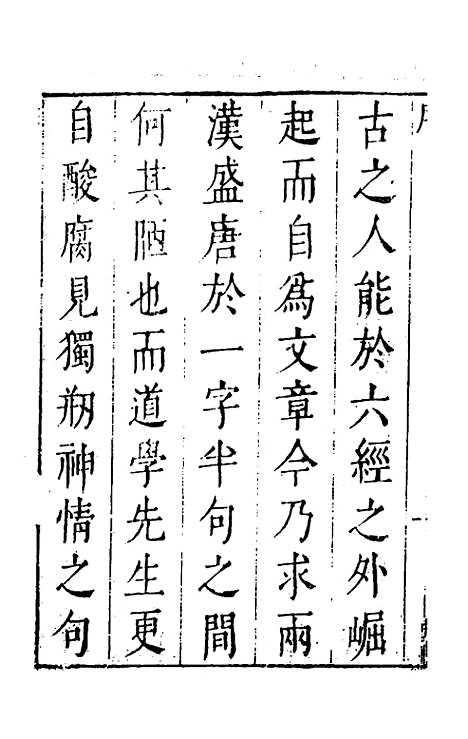 古之人能於六經之外崛
起而自為文章今乃求兩
漢盛唐於一字半句之間
何其陋也而道學先生更
自酸腐見獨剏神情之句